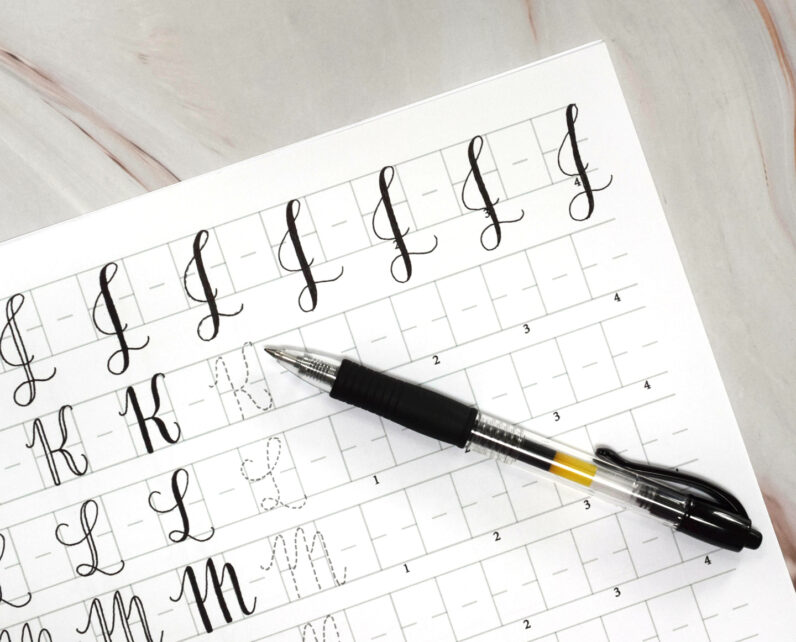 J J J J J J J
2 3 4
K K K
2 3 4
L L L L
1 3 4
M M M M
1 2 3
M
2 3 4